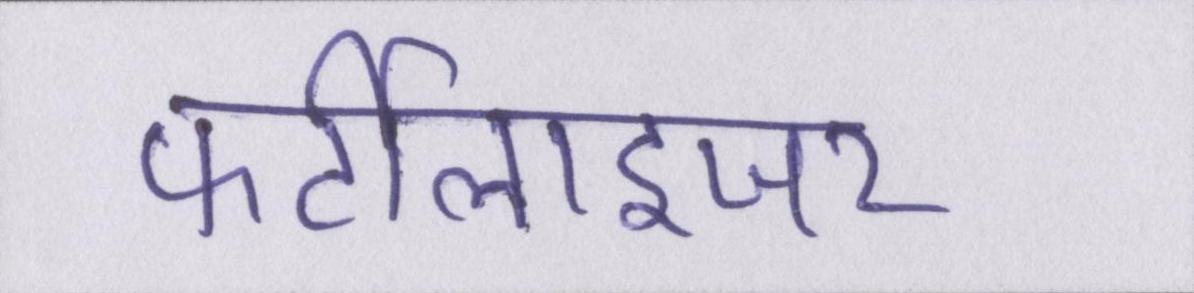 फर्टीलाइजर